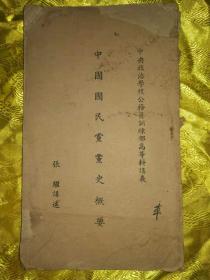 中央政治學校公務員訓練部高等科講義
中國國民黨黨史概要
張繼講述